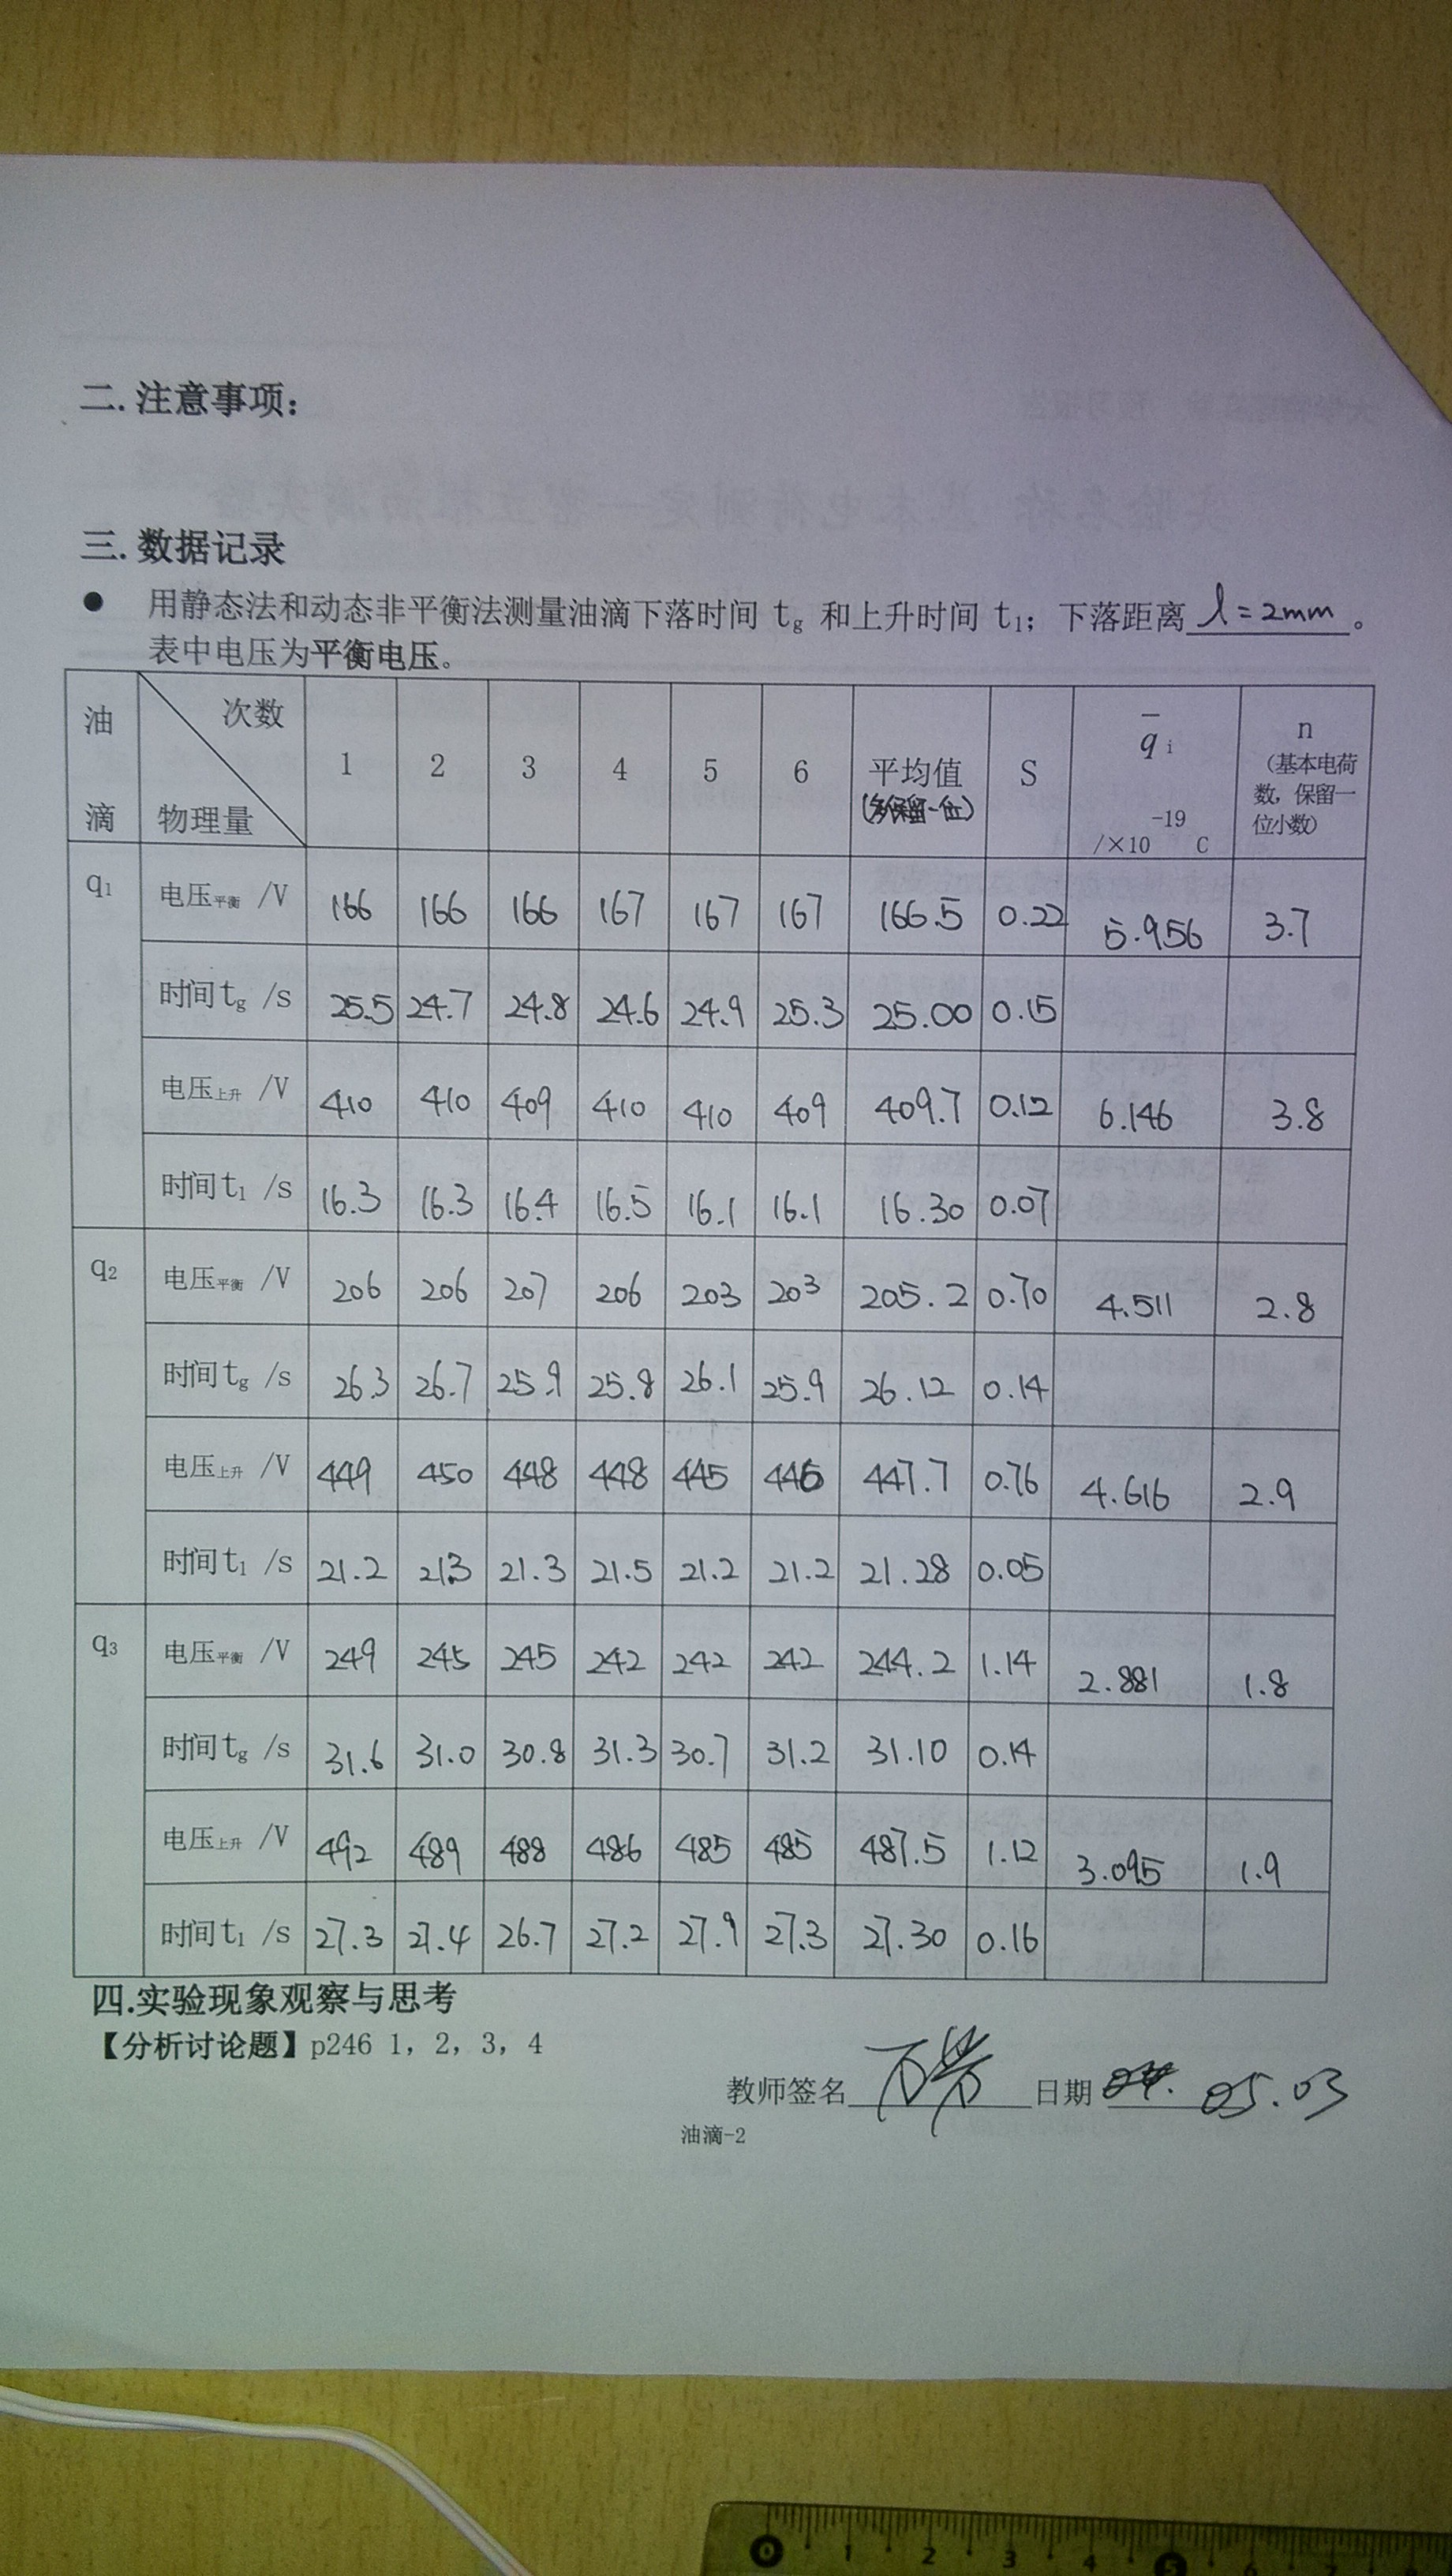 二. 注意事项:
三. 数据记录
● 用静态法和动态非平衡法测量油滴下落时间 tg 和上升时间 t1; 下落距离 l=2mm 。
表中电压为平衡电压。
油滴 次数 物理量 1 2 3 4 5 6 平均值 (多保留一位) S q̄i /×10-19 C n (基本电荷数, 保留一位小数)
q1 电压平衡 /V 166 166 166 167 167 167 166.5 0.22 5.956 3.7
时间 tg /s 25.5 24.7 24.8 24.6 24.9 25.3 25.00 0.15
电压上升 /V 410 410 409 410 410 409 409.7 0.12 6.146 3.8
时间 t1 /s 16.3 16.3 16.4 16.5 16.1 16.1 16.30 0.07
q2 电压平衡 /V 206 206 207 206 203 203 205.2 0.70 4.511 2.8
时间 tg /s 26.3 26.7 25.9 25.8 26.1 25.9 26.12 0.14
电压上升 /V 449 450 448 448 445 446 447.7 0.76 4.616 2.9
时间 t1 /s 21.2 21.3 21.3 21.5 21.2 21.2 21.28 0.05
q3 电压平衡 /V 249 245 245 242 242 242 244.2 1.14 2.881 1.8
时间 tg /s 31.6 31.0 30.8 31.3 30.7 31.2 31.10 0.14
电压上升 /V 492 489 488 486 485 485 487.5 1.12 3.095 1.9
时间 t1 /s 27.3 27.4 26.7 27.2 27.9 27.3 27.30 0.16
四.实验现象观察与思考
【分析讨论题】p246 1, 2, 3, 4
教师签名 日期 05.03
油滴-2
0 1 2 3 4 5 6